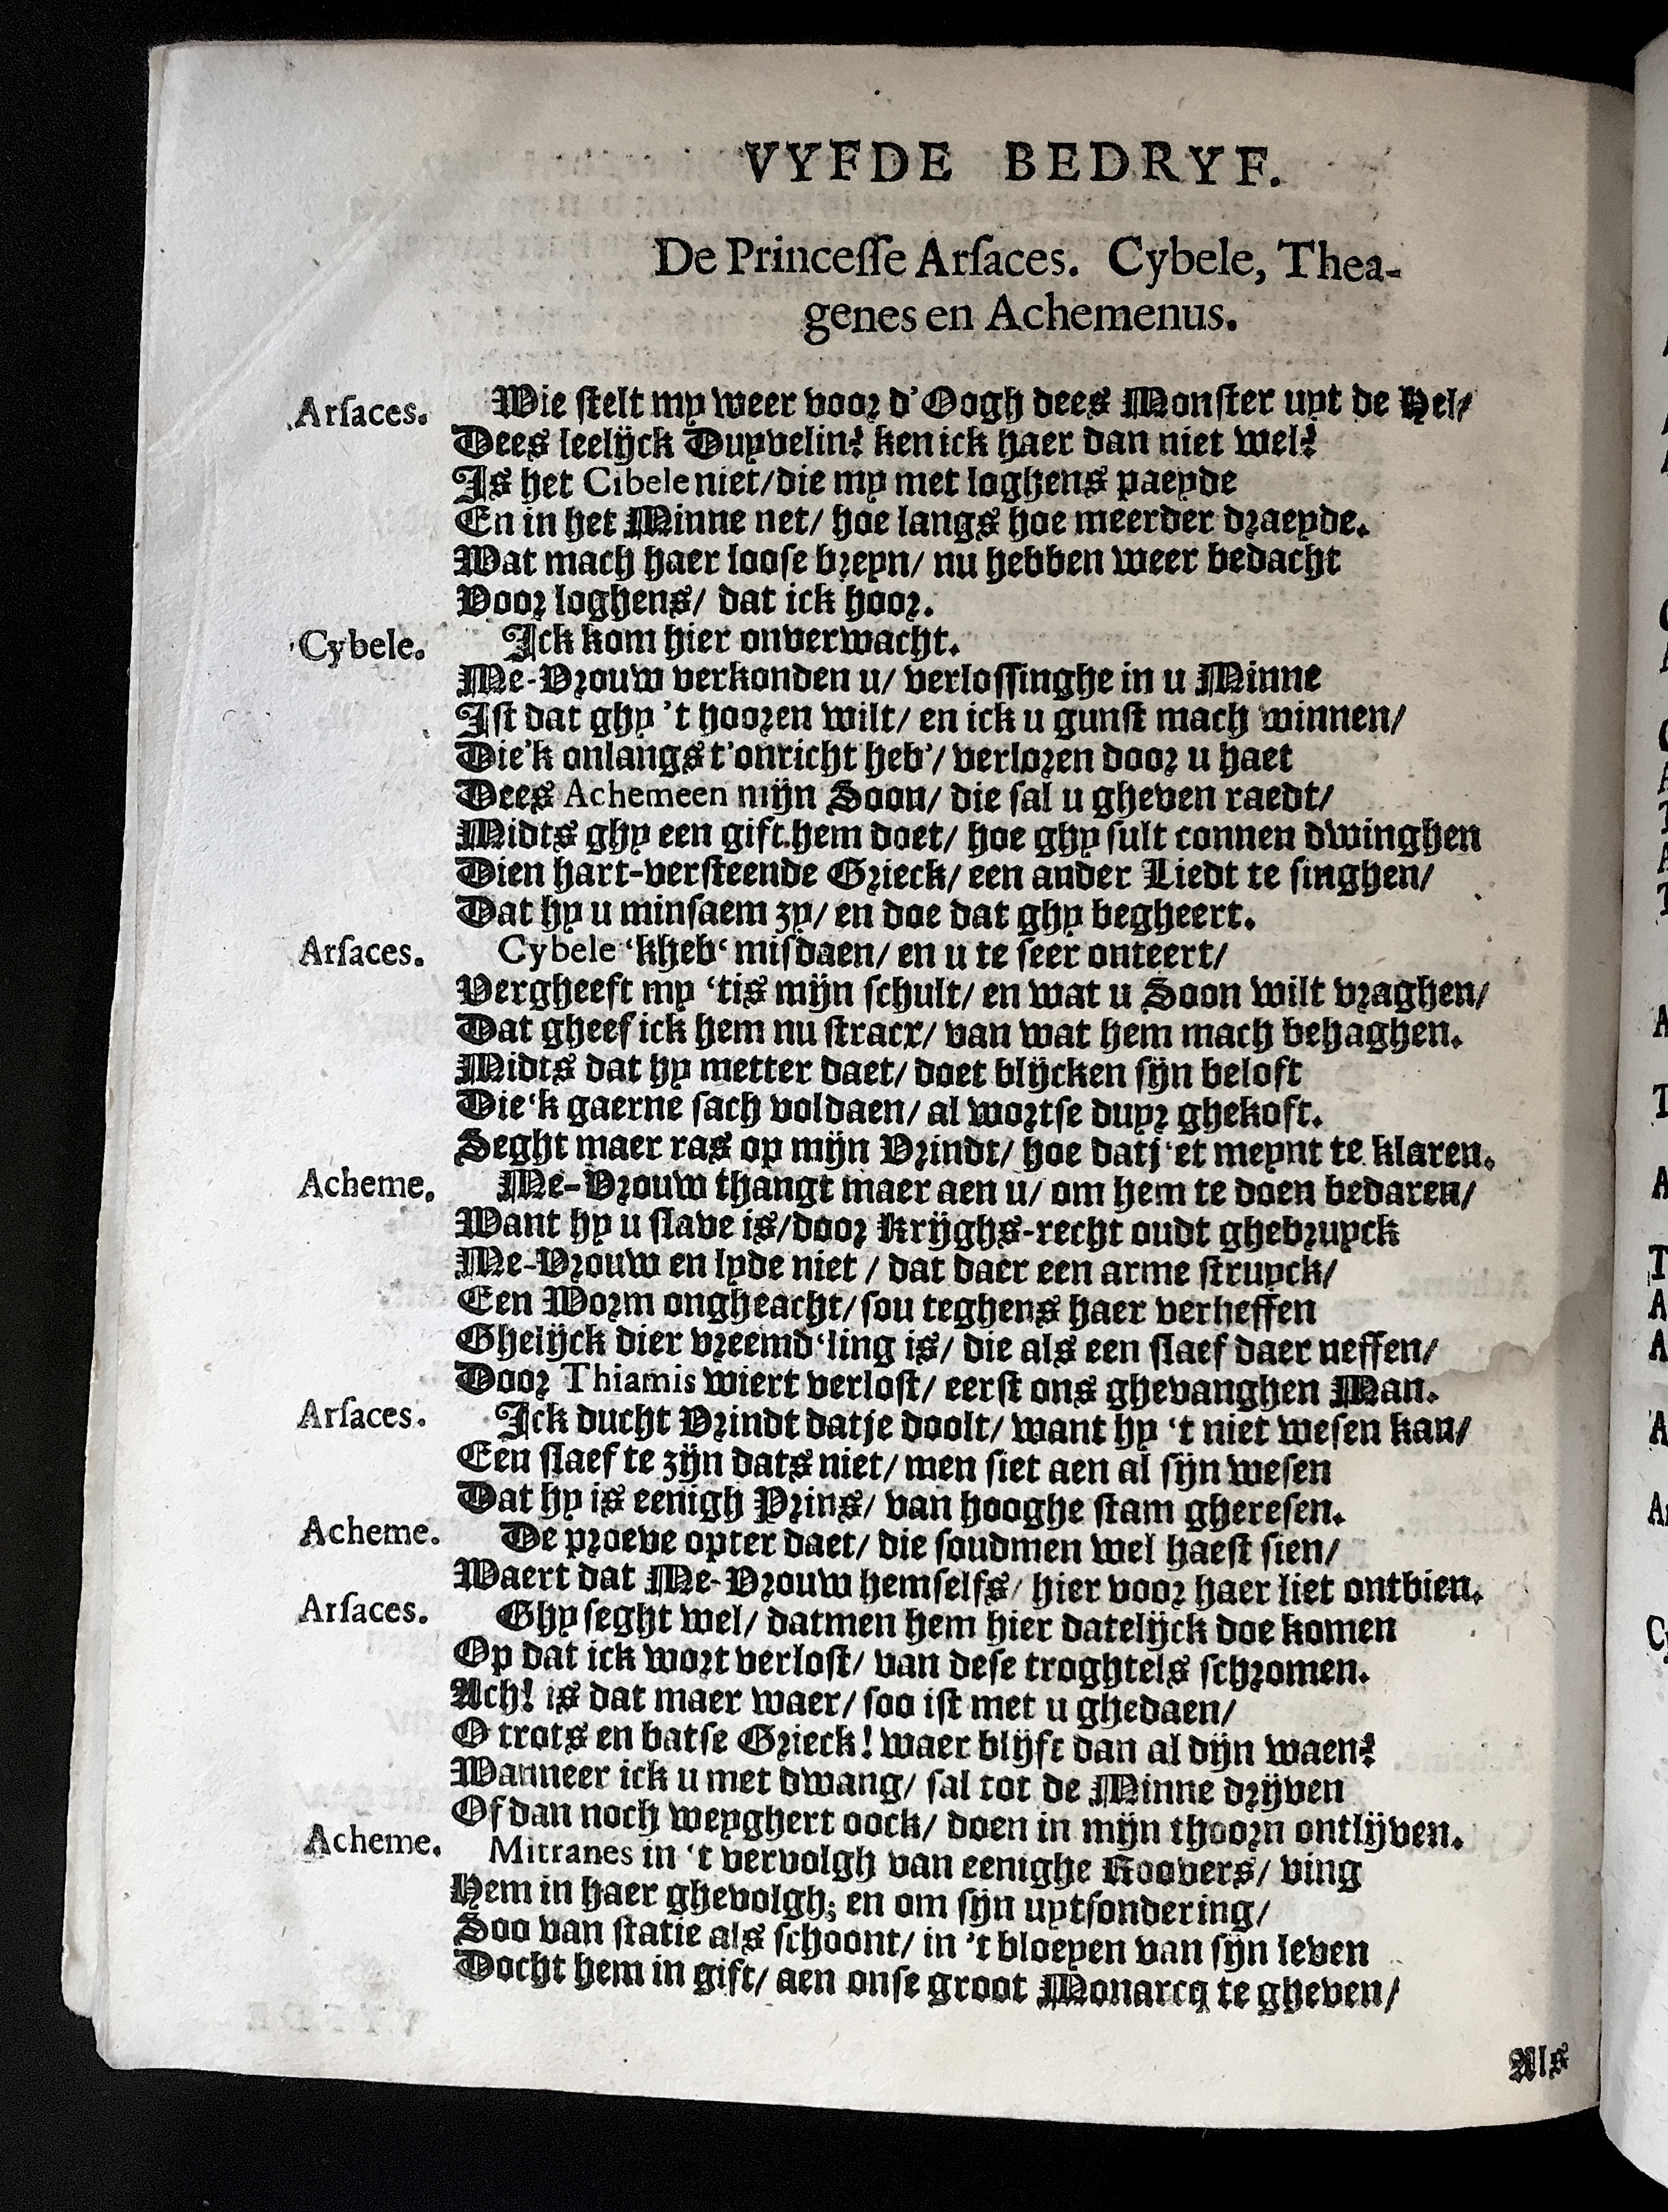 VYFDE BEDRYF.
De Princeſſe Arſaces. Cybele, Thea-
genes en Achemenus.
Arſaces. Wie ſtelt my weer voor d'Oogh dees Monſter uyt de Hel/
Dees leelijck Duyvelin? ken ick haer dan niet wel?
Is het Cibele niet/die my met loghens paeyde
En in het Minne net/ hoe langs hoe meerder draeyde.
Wat mach haer looſe breyn/ nu hebben weer bedacht
Voor loghens/ dat ick hoor.
Cybele. Ick kom hier onverwacht.
Me-Vrouw verkonden u/ verloſſinghe in u Minne
Iſt dat ghy 't hooren wilt/ en ick u gunſt mach winnen/
Die'k onlangs t'onricht heb'/ verloren door u haet
Dees Achemeen mijn Soon/ die ſal u gheven raedt/
Midts ghy een gift hem doet/ hoe ghy ſult connen dwinghen
Dien hart-verſteende Grieck/ een ander Liedt te ſinghen/
Dat hy u minſaem zy/ en doe dat ghy begheert.
Arſaces. Cybele ‘kheb‘ miſdaen/ en u te ſeer onteert/
Vergheeft my ‘tis mijn ſchult/ en wat u Soon wilt vraghen/
Dat gheef ick hem nu ſtracx/ van wat hem mach behaghen.
Midts dat hy metter daet/ doet blijcken ſijn beloft
Die‘k gaerne ſach voldaen/ al wortſe duyr ghekoft.
Seght maer ras op mijn Vrindt/ hoe datj‘et meynt te klaren.
Acheme. Me-Vrouw thangt maer aen u/ om hem te doen bedaren/
Want hy u ſlave is/door Krijghs-recht oudt ghebruyck
Me-Vrouw en lyde niet / dat daer een arme ſtruyck/
Een Worm ongheacht/ſou teghens haer verheffen
Ghelijck dier vreemd‘ling is/ die als een ſlaef daer neffen/
Door Thiamis wiert verloſt/ eerſt ons ghevanghen Man.
Arſaces. Ick ducht Vrindt datje doolt/ want hy ‘t niet weſen kan/
Een ſlaef te zijn dats niet/ men ſiet aen al ſijn weſen
Dat hy is eenigh Prins/ van hooghe ſtam ghereſen.
Acheme. De proeve opter daet/ die ſoudmen wel haeſt ſien/
Waert dat Me-Vrouw hemſelfs/ hier voor haer liet ontbien.
Arſaces. Ghy ſeght wel/ datmen hem hier datelijck doe komen
Op dat ick wort verloſt/ van deſe troghtels ſchromen.
Ach! is dat maer waer/ ſoo iſt met u ghedaen/
O trots en batſe Grieck! waer blijft dan al dijn waen?
Wanneer ick u met dwang/ ſal tot de Minne drijven
Of dan noch weyghert oock/ doen in mijn thoorn ontlijven.
Acheme. Mitranes in ‘t vervolgh van eenighe Roovers/ ving
Hem in haer ghevolgh; en om ſijn uytſondering/
Soo van ſtatie als ſchoont/ in 't bloeyen van ſijn leven
Docht hem in gift/ aen onſe groot Monarcq te gheven/
Als